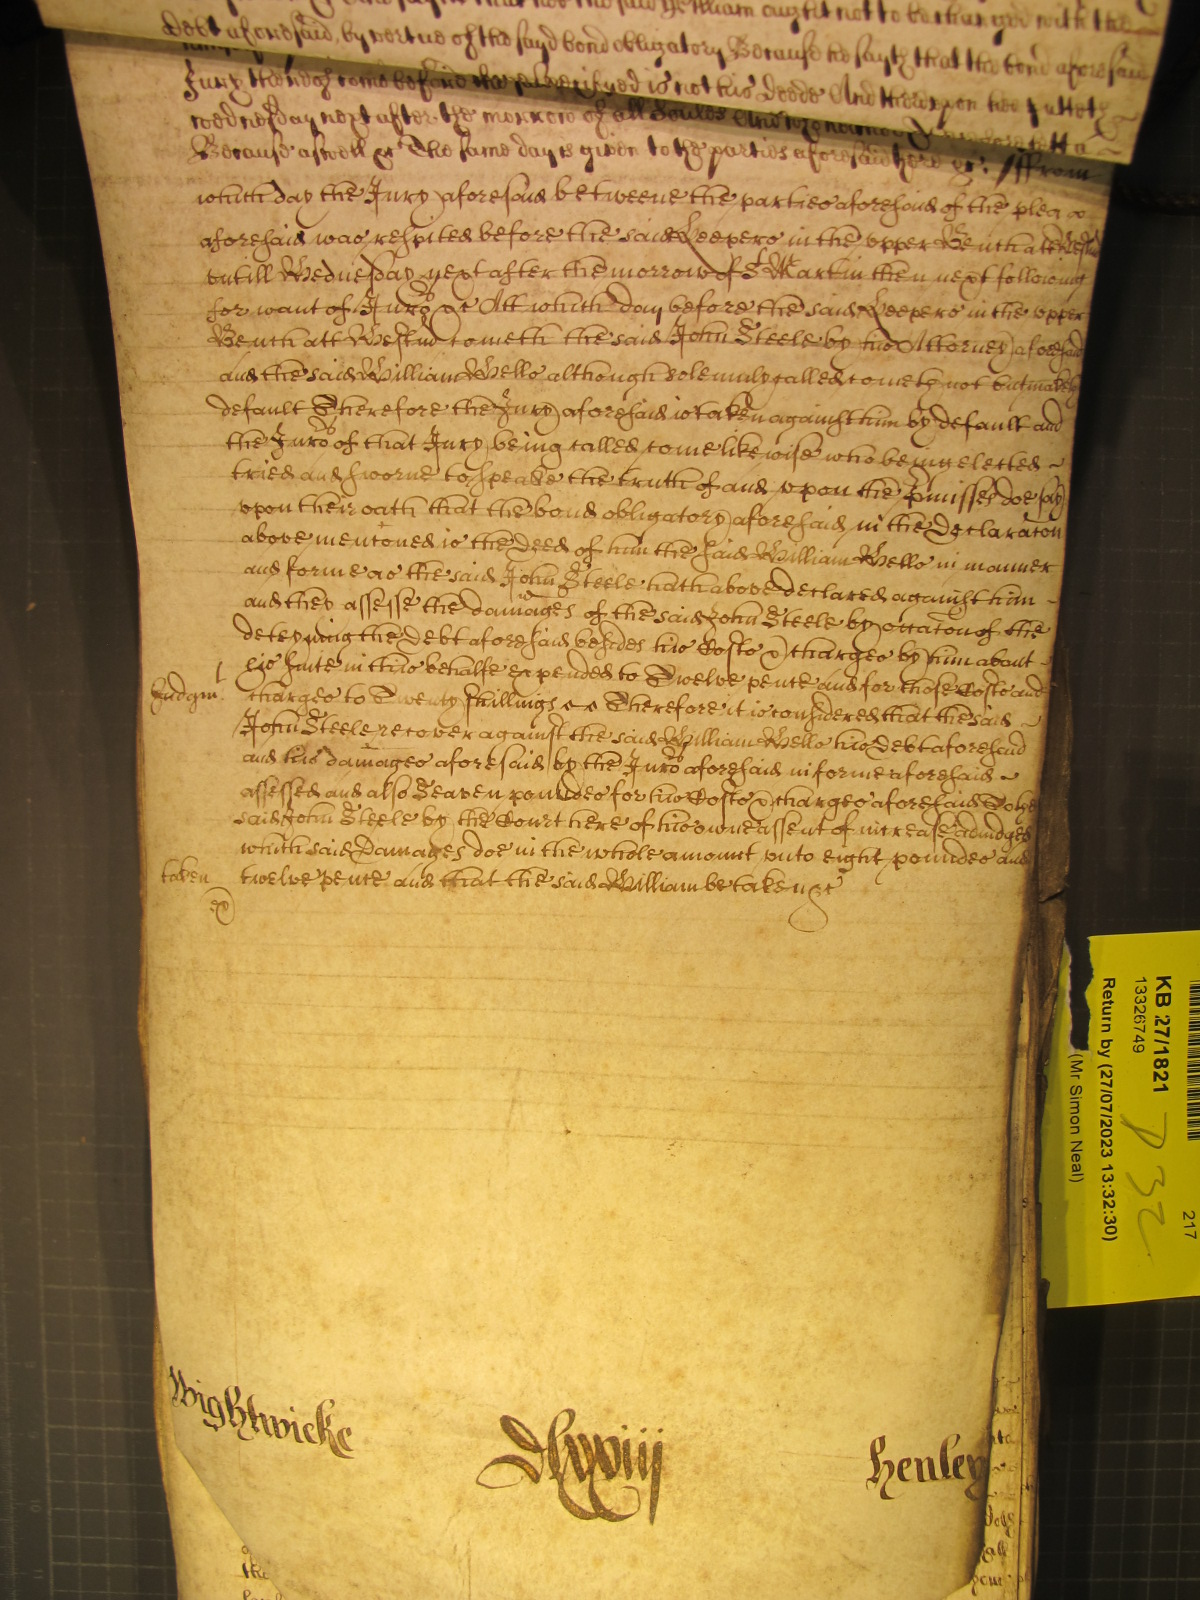 the said William ought not to be charged with the
Debt aforesaid, by vertue of the sayd bond obligatory Because he sayth that the bond aforesaid
is not his Deede And thereupon hee putteth
Jury thereof come before the
wednesday next after the morrow of all Soules And
Because aswell &c The same day is given to the parties aforesaid here &c. ffrom
which day the Jury aforesaid betweene the parties aforesaid of the plea
aforesaid was respited before the said Keepers in the upper Bench att Westm
untill Wednesday next after the morrow of St Martin then next following
for want of Juro's &c Att which day before the said Keepers in the upper
Bench att Westm cometh the said John Steele by his Attorney aforesaid
and the said William Wells although solemnly called cometh not but maketh
default Therefore the Jury aforesaid is taken against him by default and
the Juro's of that Jury being called come likewise who being elected
tried and sworne to speake the truth of and upon the p'misses doe say
upon their oath that the bond obligatory aforesaid in the Declaraton
above mentoned is the Deed of him the said William Wells in manner
and forme as the said John Steele hath above declared against him
and they assesse the damages of the said John Steele by occaton of the
deteyning the Debt aforesaid besides his Costs & charges by him about
his suite in this behalfe expended to Twelve pence and for those Costs and
Judgmt charges to Twenty shillings Therefore it is considered that the said
John Steele recover against the said William Wells his Debt aforesaid
and his damages aforesaid by the Juro's aforesaid in forme aforesaid
assessed and also Seaven poundes for his Costs & charges aforesaid To the
said John Steele by the Court here of his owne assent of increase adiudged
which said Damages doe in the whole amount unto eight poundes and
taken twelve pence and that the said William be taken &c
KB 27/1821
13326749
Return by (27/07/2023 13:32:30)
(Mr Simon Neal)
217
P 32
Wightwicke
Henley